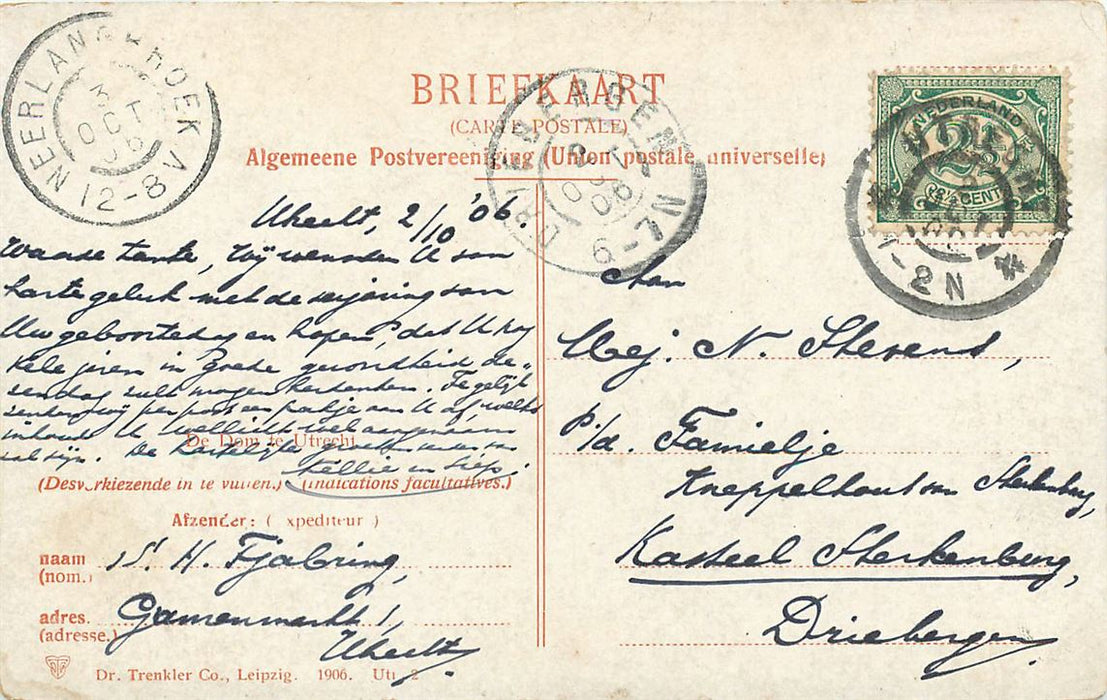 NEERLANGBROEK
3
OCT
06
12-8V
BRIEFKAART
(CARTE POSTALE)
Algemeene Postvereeniging (Union postale universelle)
DRIEBERGEN
2
OCT
06
6-7N
NEDERLAND
2½
(2½ CENT)
1-2N
Utrecht, 2/10 '06.
Waarde tante, Wij wenschen U van
harte geluk met de verjaring van
Uw geboortedag en hopen, dat U nog
vele jaren in goede gezondheid de-
zen dag zult mogen herdenken. Tegelijk
zenden wij per post een pakje aan U af, welks
inhoud U wellicht wel aangenaam
zal zijn. De hartelijke groeten van
De Dom te Utrecht
(Desverkiezende in te vullen.) (Indications facultatives.)
Afzender: (Expediteur)
naam H. Fjabring,
(nom.)
adres. Ganzenmarkt 1,
(adresse.) Utrecht.
Dr. Trenkler Co., Leipzig. 1906. Utr. 2
Aan
Mej. N. Stevens,
p/a. Familje
Kneppelhout van Sterkenburg,
Kasteel Sterkenburg,
Driebergen